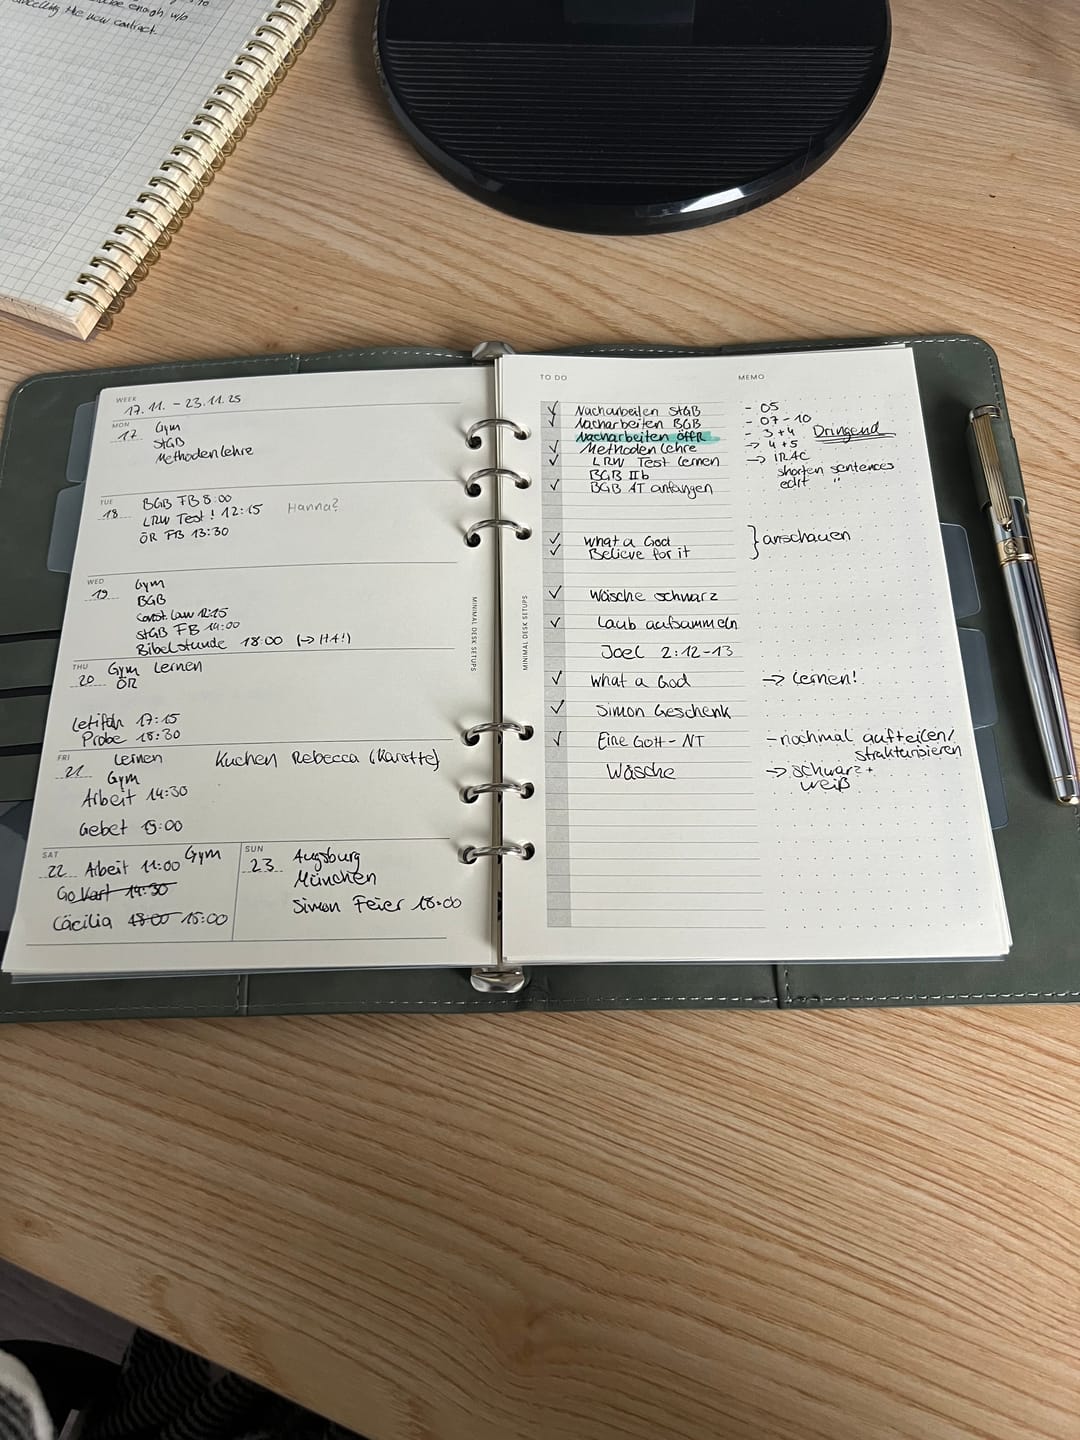 enough w/o
cancelling the new contract.
WEEK
17.11. - 23.11.25
MON
17 Gym
StGB
Methodenlehre
TUE
18 BGB FB 8:00
LRW Test! 12:15 Hanna?
ÖR FB 13:30
WED
19 Gym
BGB
const. law 12:15
StGB FB 14:00
Bibelstunde 18:00 (-> H4!)
THU
20 Gym Lernen
ÖR
17:15
Probe 18:30
FRI
21 Lernen Kuchen Rebecca (Karotte)
Gym
Arbeit 14:30
Gebet 15:00
SAT
22 Arbeit 11:00 Gym
Go Kart 14:30
Cäcilia 18:00 15:00
SUN
23 Augsburg
München
Simon Feier 18:00
MINIMAL DESK SETUPS
MINIMAL DESK SETUPS
TO DO MEMO
✓ Nacharbeiten StGB - 05
✓ Nacharbeiten BGB - 07-10
Nacharbeiten ÖffR - 3+4 Dringend
✓ Methodenlehre -> 4+5
✓ LRW Test lernen -> IRAC
BGB IIb shorten sentences
✓ BGB AT anfangen edit "
✓ what a God } anschauen
✓ Believe for it
✓ Wäsche schwarz
✓ Laub aufsammeln
Joel 2:12-13
✓ what a God -> Lernen!
✓ Simon Geschenk
✓ Eine Gott - NT - nochmal aufteilen/
strukturisieren
Wäsche -> schwarz +
weiß